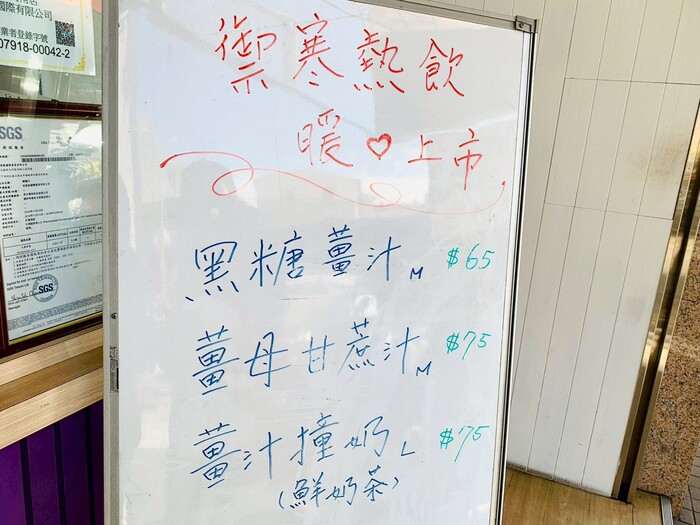 國際有限公司
業者登錄字號
07918-00042-2
SGS
SGS
御寒熱飲
暖♡上市
黑糖薑汁 M $65
薑母甘蔗汁 M $75
薑汁撞奶 L $75
(鮮奶茶)